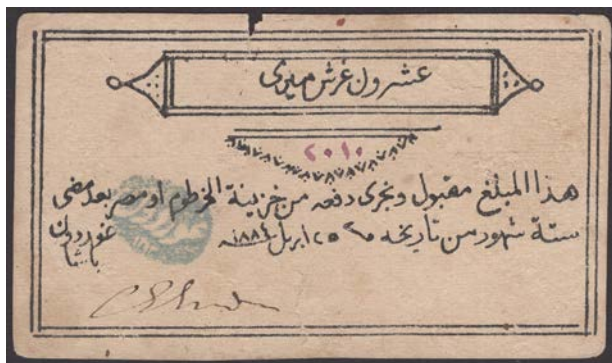 عشرون غرش ميرى
٢٠١٠
هذا المبلغ مقبول وتجرى دفعه من خزينة الخرطوم او مصر بعد مضى
ستة شهور من تاريخه ٢٥ ابريل ١٨٨٤
غوردون
باشا